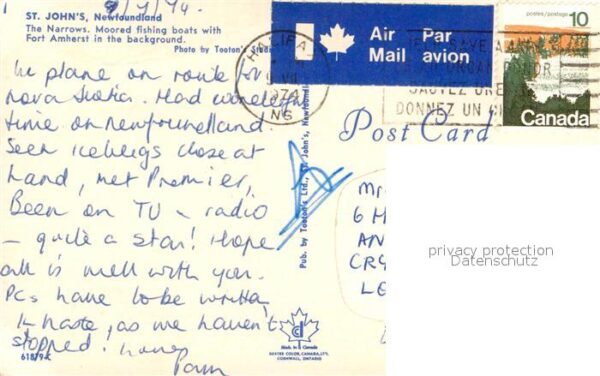 9/7/74.
ST. JOHN'S, Newfoundland
The Narrows. Moored fishing boats with
Fort Amherst in the background.
Photo by Tooton's
In plane on route for
Nova Scotia. Had wonderful
time on Newfoundland.
Seen icebergs close at
hand, met Premier,
Been on TV - radio
- quite a star! Hope
all is well with you.
PCs have to be written
in haste, as we haven't
stopped! Love
Pam
61879-K
Pub. by Tooton's Ltd., St. John's, Newfoundland
Made in Canada
DEXTER COLOR, CANADA, LTD.
CORNWALL, ONTARIO
Air Par
Mail avion
HALIFAX
1974
NS
SAUVEZ UNE
DONNEZ UN
postes/postage
10
Canada
Post Card
Mr
6 H
AN
CRY
LE
privacy protection
Datenschutz